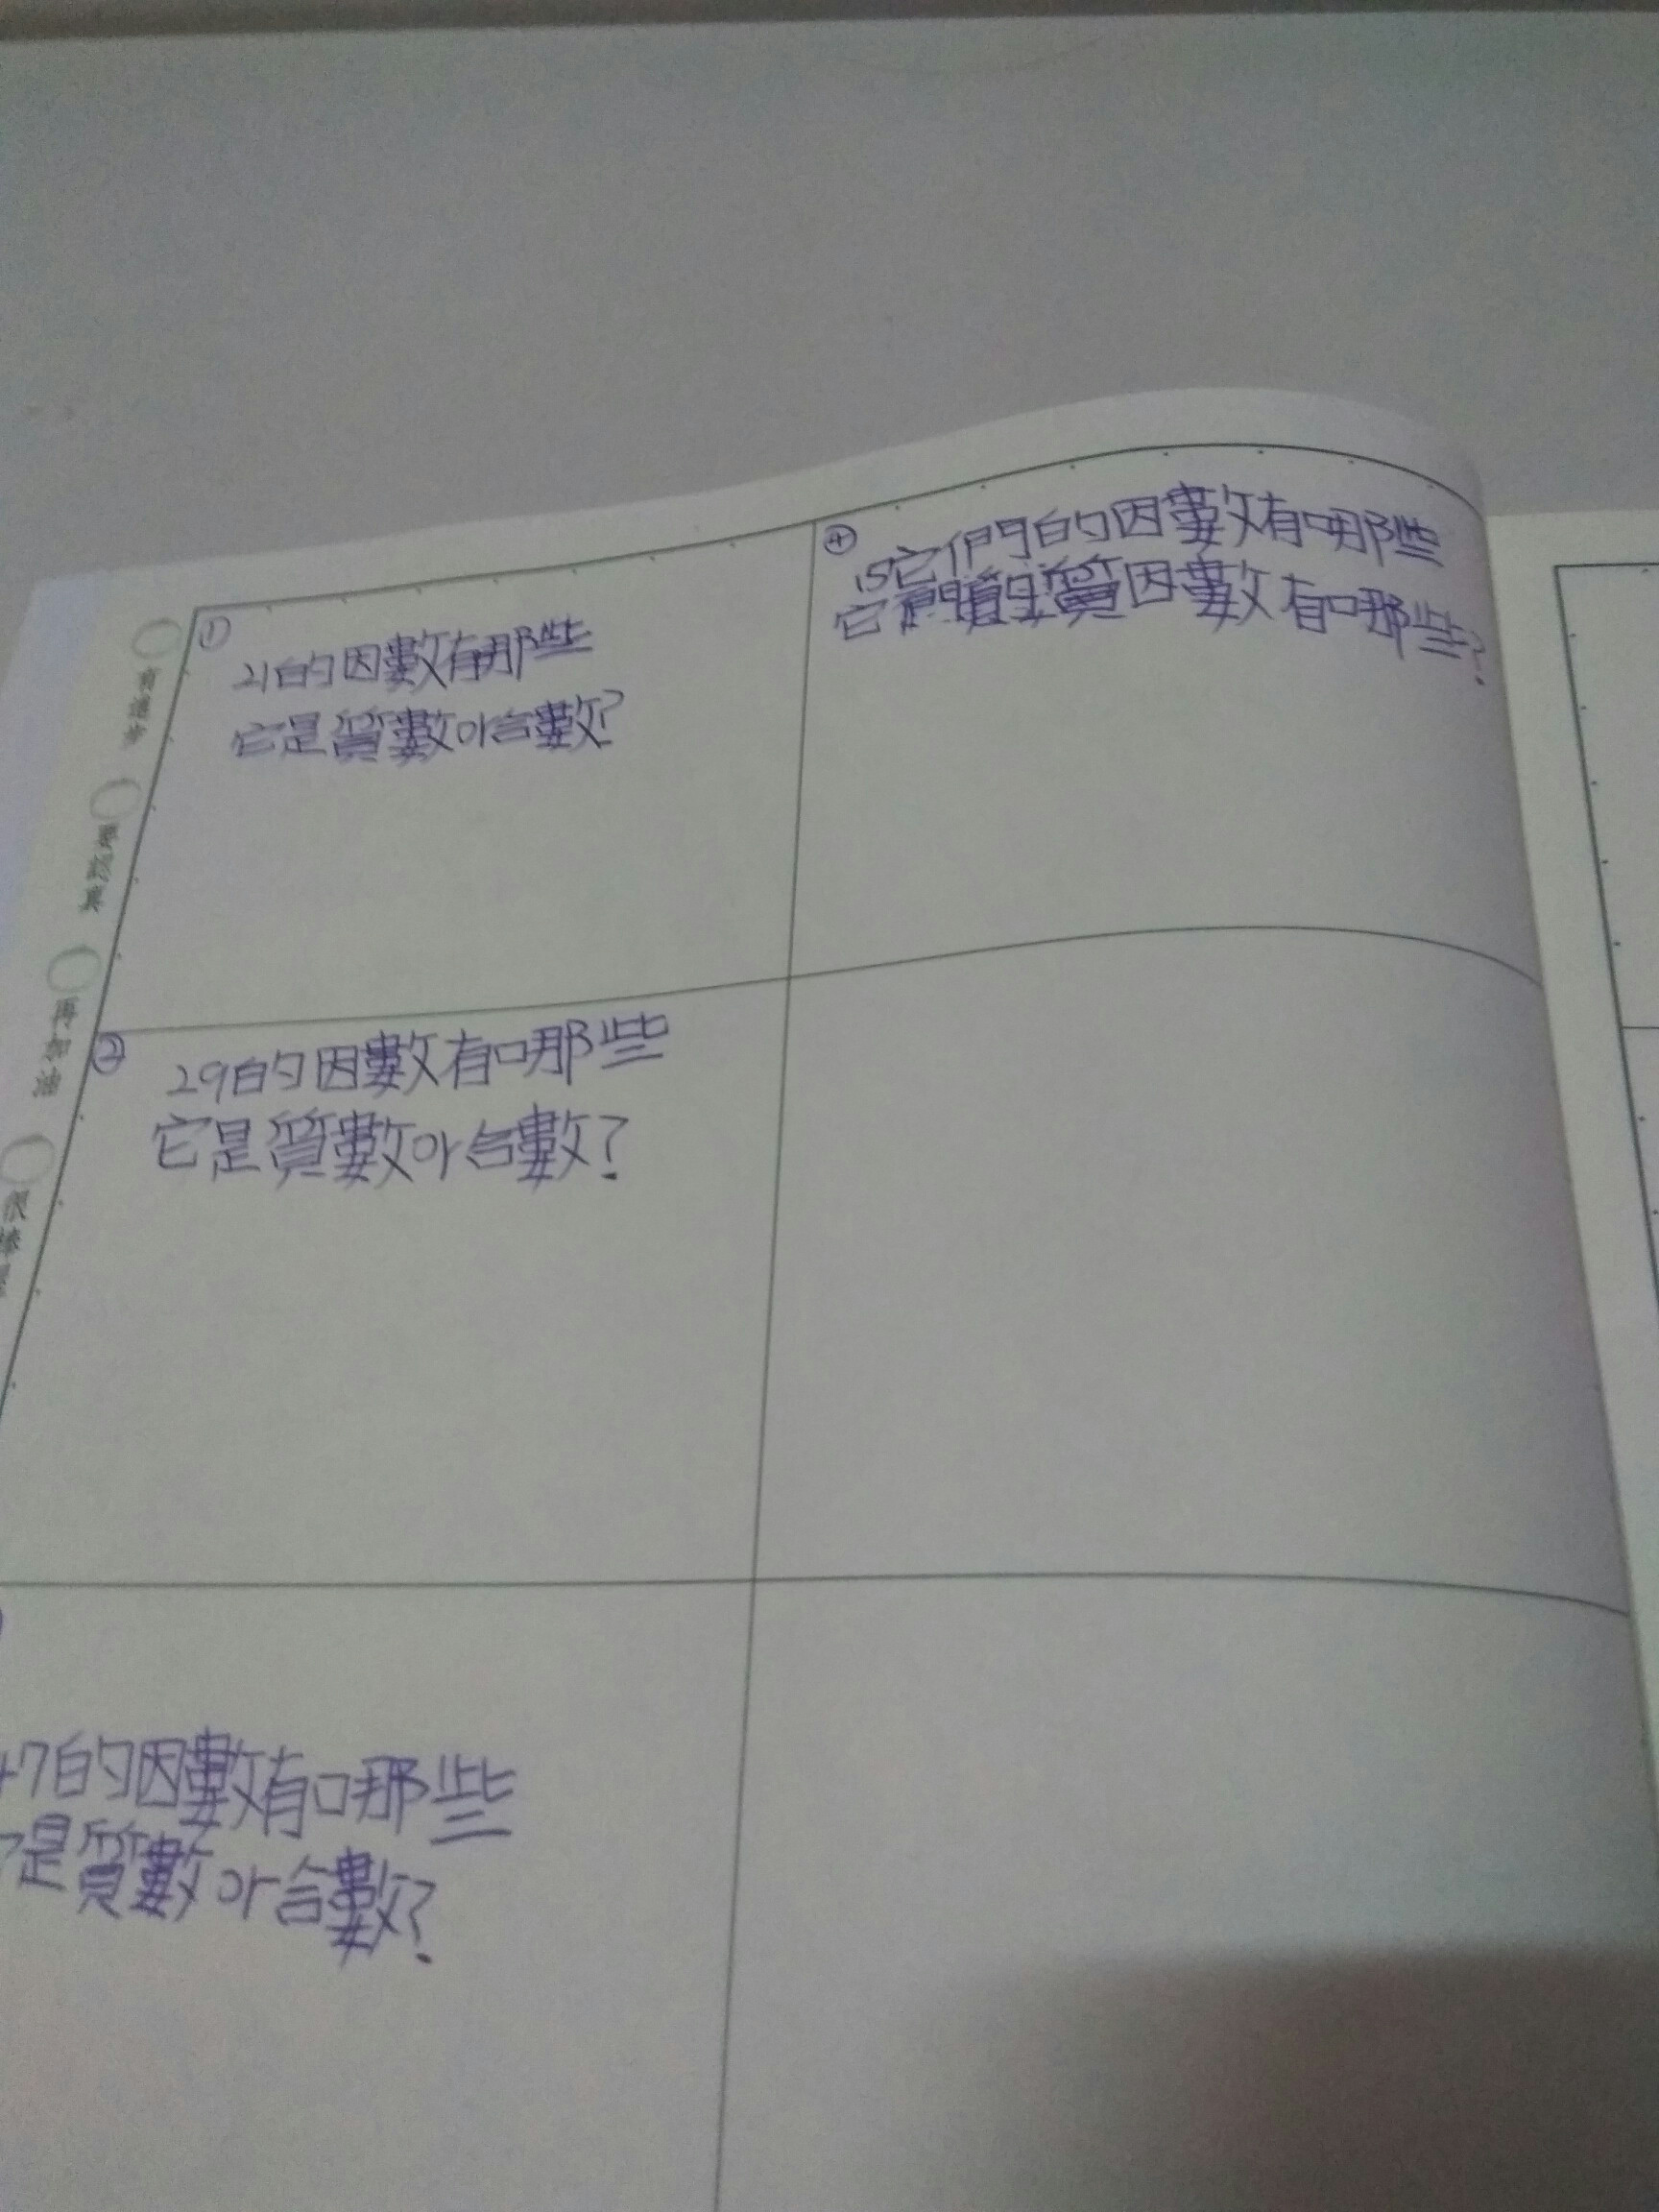 ①
21的因數有哪些
它是質數or合數?
④
15它們的因數有哪些
它 質因數有哪些?
②
29的因數有哪些
它是質數or合數?
7的因數有哪些
是質數or合數?
再加油
很棒